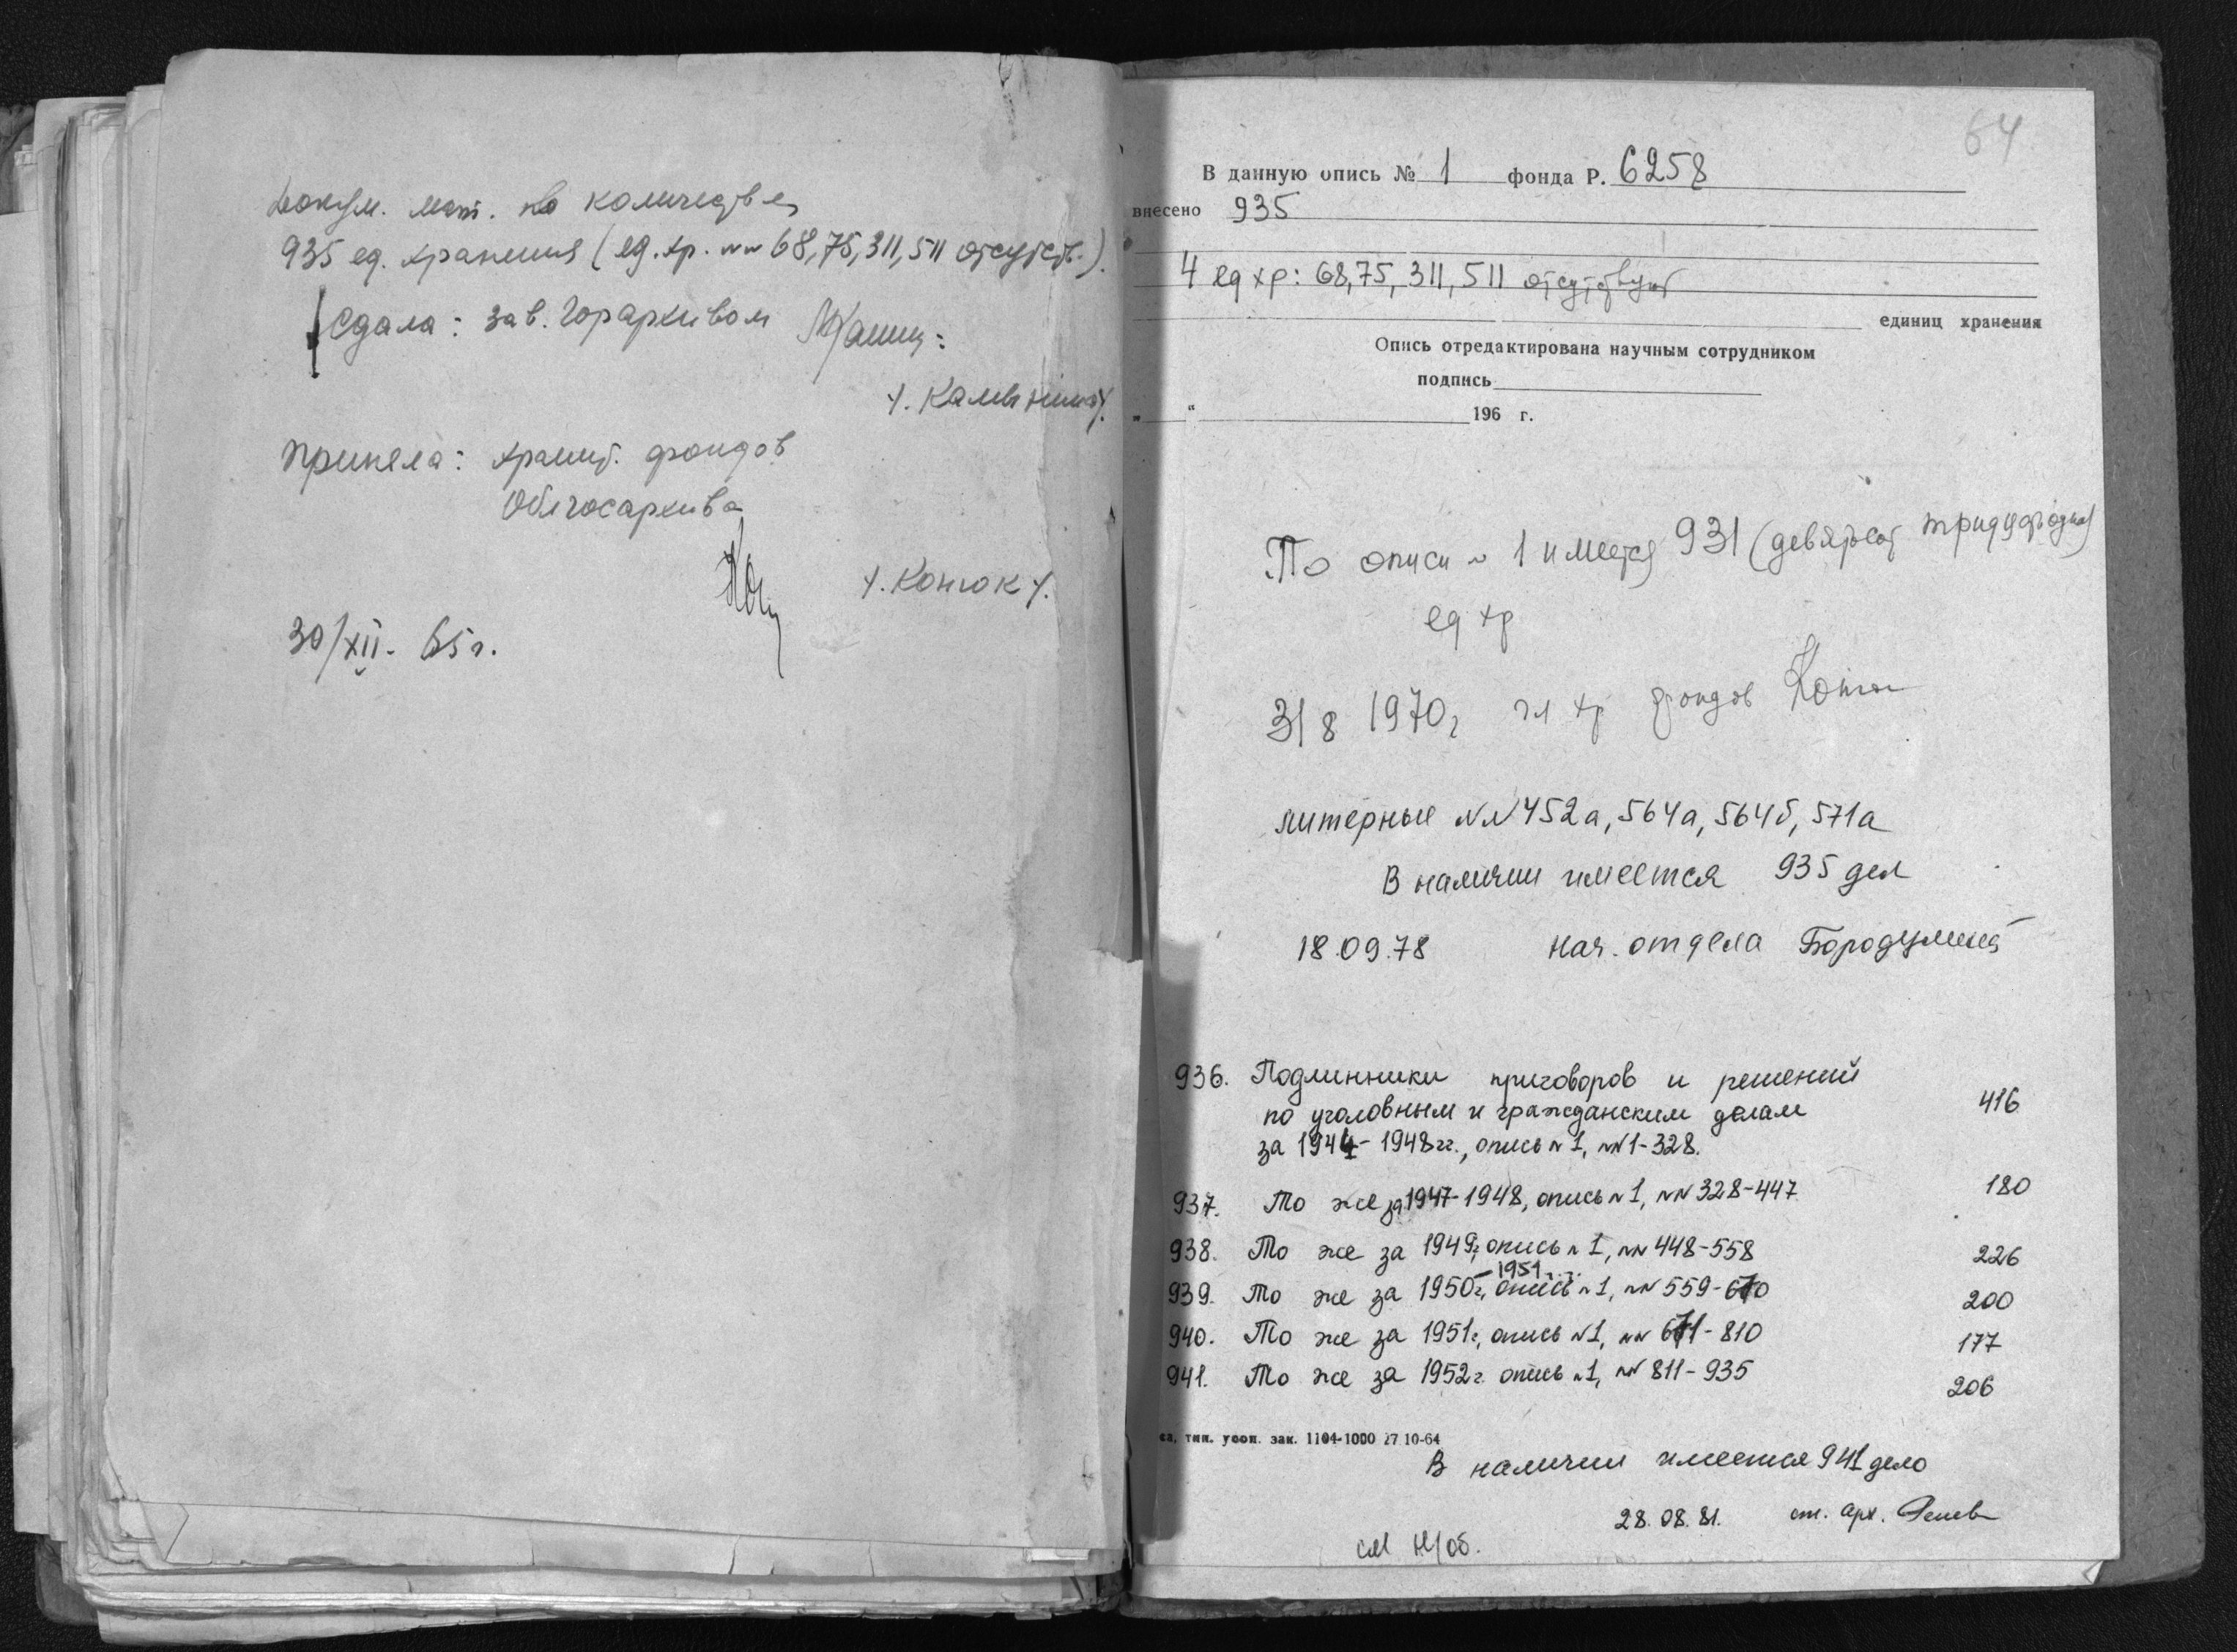 Докум. мат. в количестве
935 ед. хранения (ед. хр. №№ 68, 75, 311, 511 отсутств.).
Сдала: зав. Горархивом
Приняла: хранит. фондов
Облгосархива
/. Конюк /.
30/XII - 65 г.
64
В данную опись № 1 фонда Р. 6258
внесено 935
4 ед хр: 68, 75, 311, 511 отсутствуют
единиц хранения
Опись отредактирована научным сотрудником
подпись
„ “ 196 г.
По описи № 1 имеется 931 (девятьсот тридцать одна)
ед хр
31 8 1970 г гл хр фондов
литерные №№ 452а, 564а, 564б, 571а
В наличии имеется 935 дел
18.09.78 нач. отдела
936. Подлинники приговоров и решений
по уголовным и гражданским делам 416
за 1944 - 1948 гг., опись № 1, №№ 1-328.
937. То же за 1947-1948, опись № 1, №№ 328-447 180
938. То же за 1949 г., опись № 1, №№ 448-558 226
-1951
939. То же за 1950 г., опись № 1, №№ 559-670 200
940. То же за 1951 г., опись № 1, №№ 671-810 177
941. То же за 1952 г. опись № 1, №№ 811-935 206
зак. 1104-1000 27 10-64
В наличии имеется 941 дело
28.08.81. ст. арх.
см н/об.